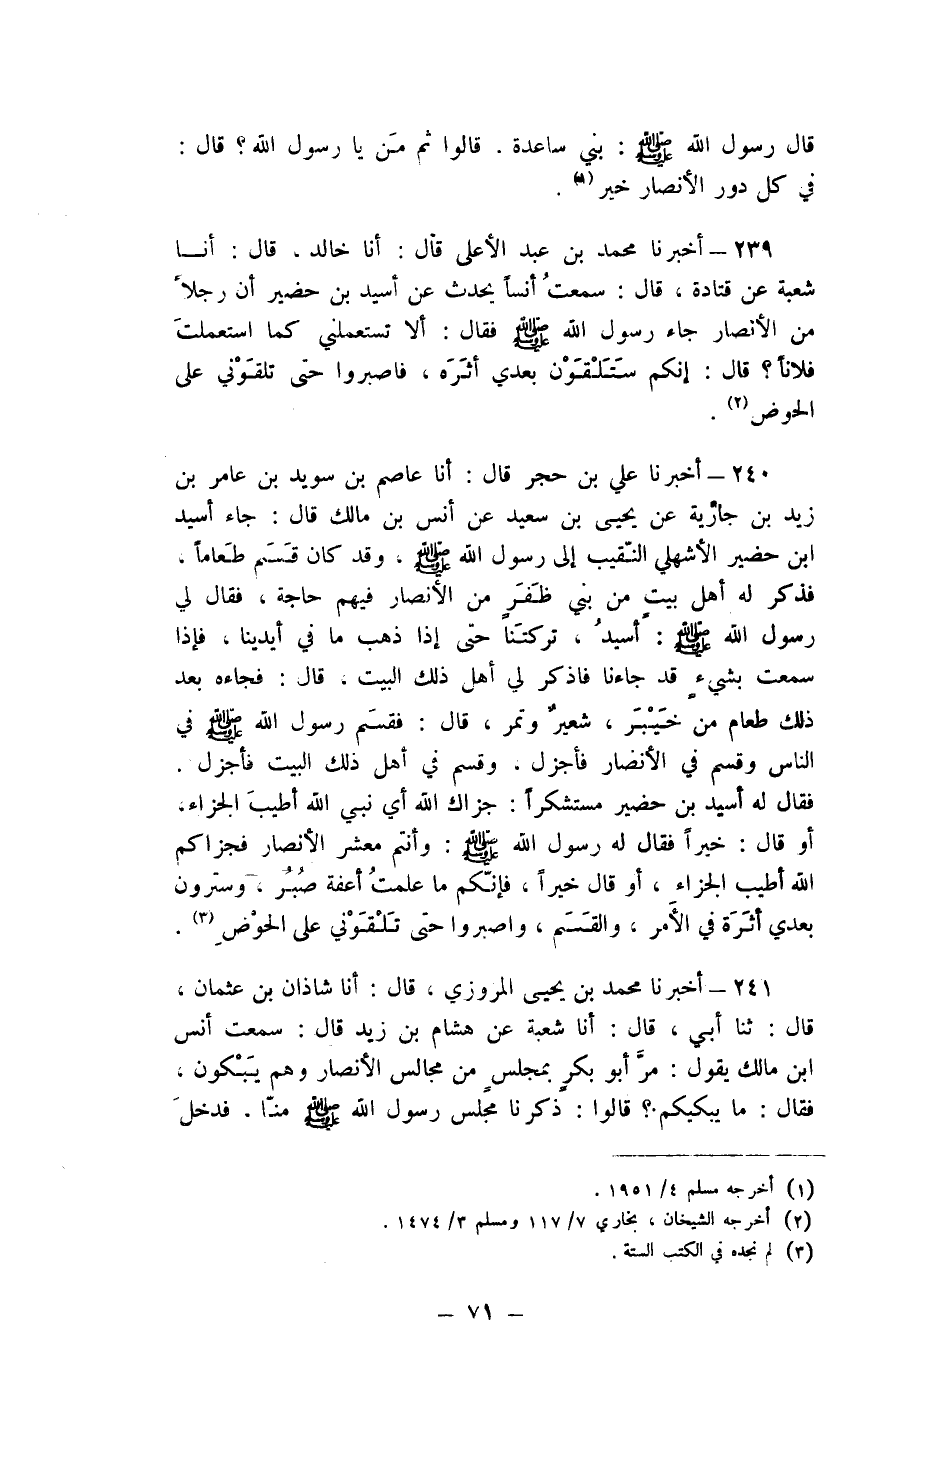 قال رسول الله ﷺ : بني ساعدة . قالوا ثم مَن يا رسول الله ؟ قال :
في كل دور الأنصار خير (١) .
٢٣٩ – أخبرنا محمد بن عبد الأعلى قال : أنا خالد . قال : أنا
شعبة عن قتادة ، قال : سمعتُ أنساً يحدث عن أسيد بن حضير أن رجلاً
من الأنصار جاء رسول الله ﷺ فقال : ألا تستعملني كما استعملتَ
فلاناً ؟ قال : إنكم سَتَلْقَوْن بعدي أثَرَه ، فاصبروا حتى تلقَوْني على
الحوض (٢) .
٢٤٠ – أخبرنا علي بن حجر قال : أنا عاصم بن سويد بن عامر بن
زيد بن جارية عن يحيى بن سعيد عن أنس بن مالك قال : جاء أسيد
ابن حضير الأشهلي النّقيب إلى رسول الله ﷺ ، وقد كان قَسَم طَعاماً ،
فذكر له أهل بيتٍ من بني ظَفَرٍ من الأنصار فيهم حاجة ، فقال لي
رسول الله ﷺ : أسيدُ ، تركتَنا حتى إذا ذهب ما في أيدينا ، فإذا
سمعت بشيءٍ قد جاءنا فاذكر لي أهل ذلك البيت ، قال : فجاءه بعد
ذلك طعام من خَيْبَر ، شعيرٌ وتمر ، قال : فقسَم رسول الله ﷺ في
الناس وقسم في الأنصار فأجزل ، وقسم في أهل ذلك البيت فأجزل .
فقال له أسيد بن حضير مستشكراً : جزاك الله أي نبي الله أطيبَ الجزاء،
أو قال : خيراً فقال له رسول الله ﷺ : وأنتم معشر الأنصار فجزاكم
الله أطيب الجزاء ، أو قال خيراً ، فإنّكم ما علمتُ أعفة صُبُر ، وسترون
بعدي أثَرَة في الأمر ، والقَسَم ، واصبروا حتى تَلْقَوْني على الحوْضِ (٣) .
٢٤١ – أخبرنا محمد بن يحيى المروزي ، قال : أنا شاذان بن عثمان ،
قال : ثنا أبي ، قال : أنا شعبة عن هشام بن زيد قال : سمعت أنس
ابن مالك يقول : مرَّ أبو بكرٍ بمجلسٍ من مجالس الأنصار وهم يَبْكون ،
فقال : ما يبكيكم ؟ قالوا : ذكرنا مجلس رسول الله ﷺ منّا . فدخلَ
(١) أخرجه مسلم ٤/ ١٩٥١ .
(٢) أخرجه الشيخان ، بخاري ٧/ ١١٧ ومسلم ٣/ ١٤٧٤ .
(٣) لم نجده في الكتب الستة .
– ٧١ –